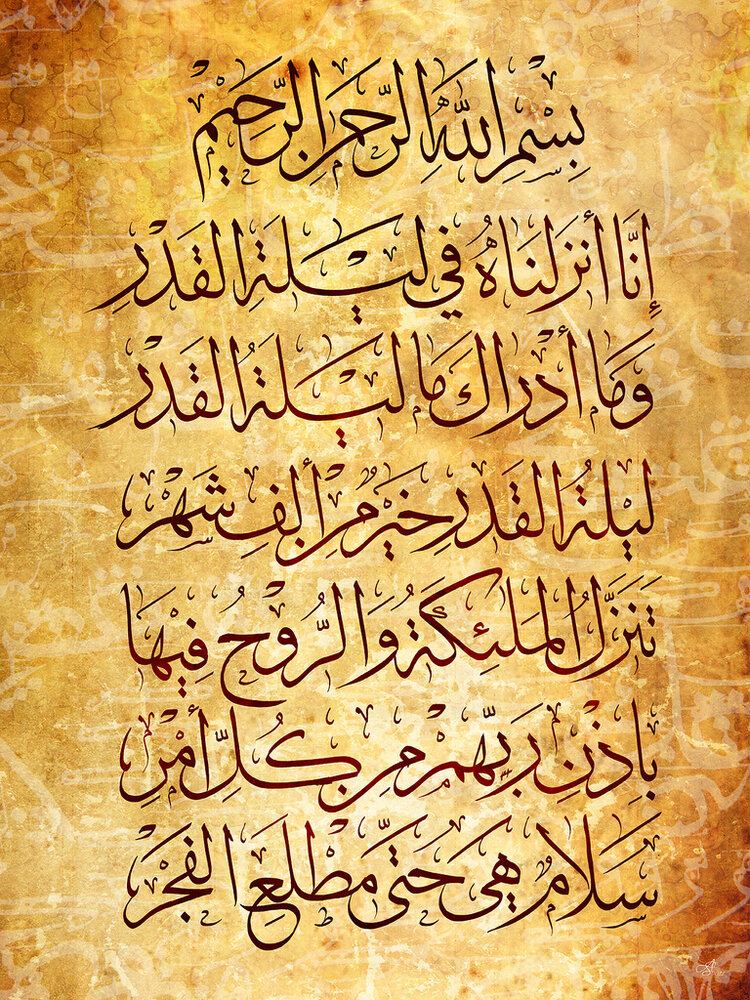 بِسْمِ اللَّهِ الرَّحْمَنِ الرَّحِيمِ
إِنَّا أَنْزَلْنَاهُ فِي لَيْلَةِ الْقَدْرِ
وَمَا أَدْرَاكَ مَا لَيْلَةُ الْقَدْرِ
لَيْلَةُ الْقَدْرِ خَيْرٌ مِنْ أَلْفِ شَهْرٍ
تَنَزَّلُ الْمَلَئِكَةُ وَالرُّوحُ فِيهَا
بِإِذْنِ رَبِّهِمْ مِنْ كُلِّ أَمْرٍ
سَلَامٌ هِيَ حَتَّى مَطْلَعِ الْفَجْرِ